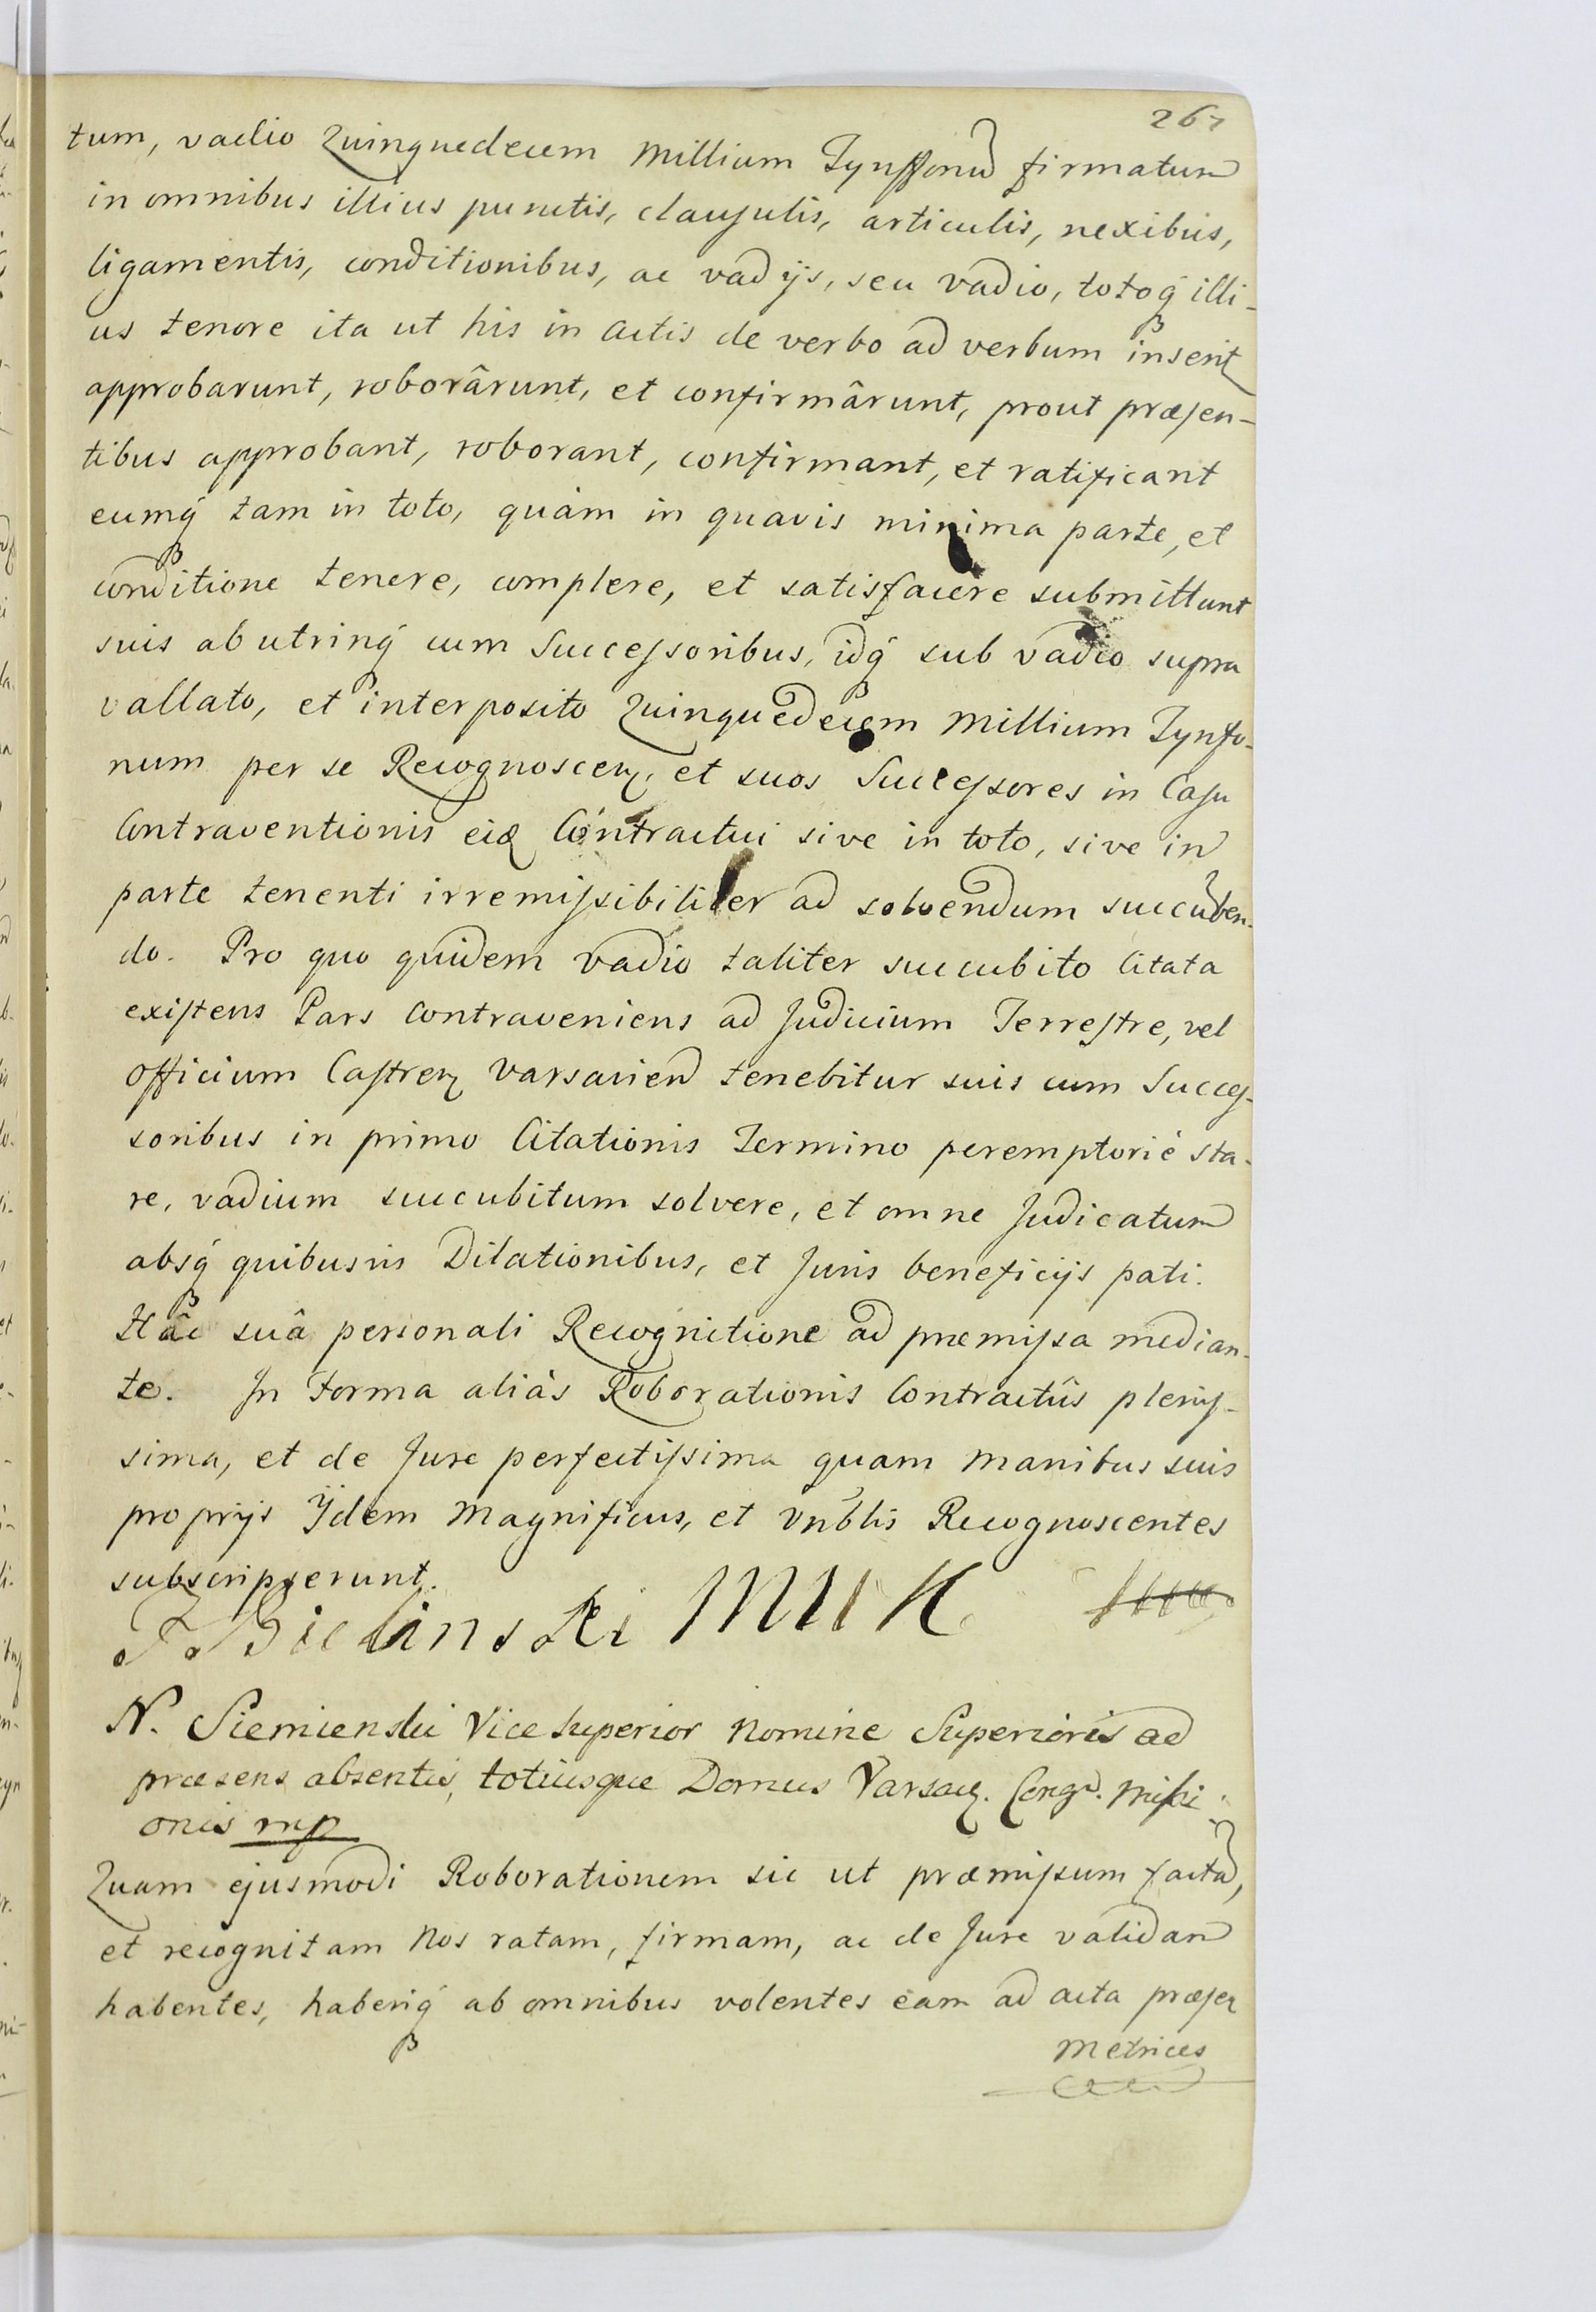 267
tum, vadio Quinquedecem Millium Tynffonũ firmatum
in omnibus illius punctis, clausulis, articulis, nexibus,
ligamentis, conditionibus, ac vadijs, seu vadio, totoq́ illi-
us tenore ita ut his in actis de verbo ad verbum inserit
approbarunt, roborârunt, et confirmârunt, prout præsen-
tibus approbant, roborant, confirmant, et ratificant
eumq́ tam in toto, quàm in quavis minima parte, et
conditione tenere, complere, et satisfacere submittunt
suis ab utrinq́ cum Successoribus, idq́ sub vadio supra
vallato, et interposito Quinquedecem Millium Tynfo-
num per se Recognoscen, et suos Successores in Casu
Contraventionis eid Contractui sive in toto, sive in
parte tenenti irremissibiliter ad solvendum succũben-
do. Pro quo quidem vadio taliter succubito Citata
existens Pars contraveniens ad Judicium Terrestre, vel
Officium Castren Varsavien tenebitur suis cum Succes-
soribus in primo Citationis Termino peremptoriè sta-
re, vadium succubitum solvere, et omne Judicatum
absq́ quibusvis Dilationibus, et Juris beneficijs pati.
Hâc suâ personali Recognitione ad præmissa median-
te. In Forma aliàs Roborationis Contractûs plenis-
sima, et de Jure perfectissima quam Manibus suis
proprijs Ijdem Magnificus, et Vnblis Recognoscentes
subscripserunt.
F Bielinski MWK
N. Siemienski Vice Superior Nomine Superioris ad
præsens absentis, totiusque Domus Varsav. Congr. Missi-
onis mp
Quam ejusmodi Roborationem sic ut præmissum factã,
et recognitam Nos ratam, firmam, ac de Jure validam
habentes, haberiq́ ab omnibus volentes eam ad acta præsen
Metrices